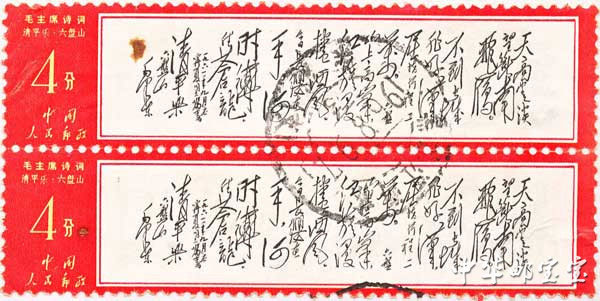 毛主席诗词
清平乐·六盘山
4分
中国
人民邮政
天高云淡
望断南
飞雁
不到长城
非好汉
屈指行程二
万
六盘
山上高峰
红旗漫
卷西风
今日长缨在
手
何
时缚
住苍龙
清平乐
六盘山
毛泽东
毛主席诗词
清平乐·六盘山
4分
中国
人民邮政
天高云淡
望断南
飞雁
不到长城
非好汉
屈指行程二
万
六盘
山上高峰
红旗漫
卷西风
今日长缨在
手
何
时缚
住苍龙
清平乐
六盘山
毛泽东
中华邮宝宝